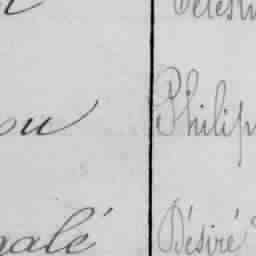 Célest
ou Philip
galé Désiré